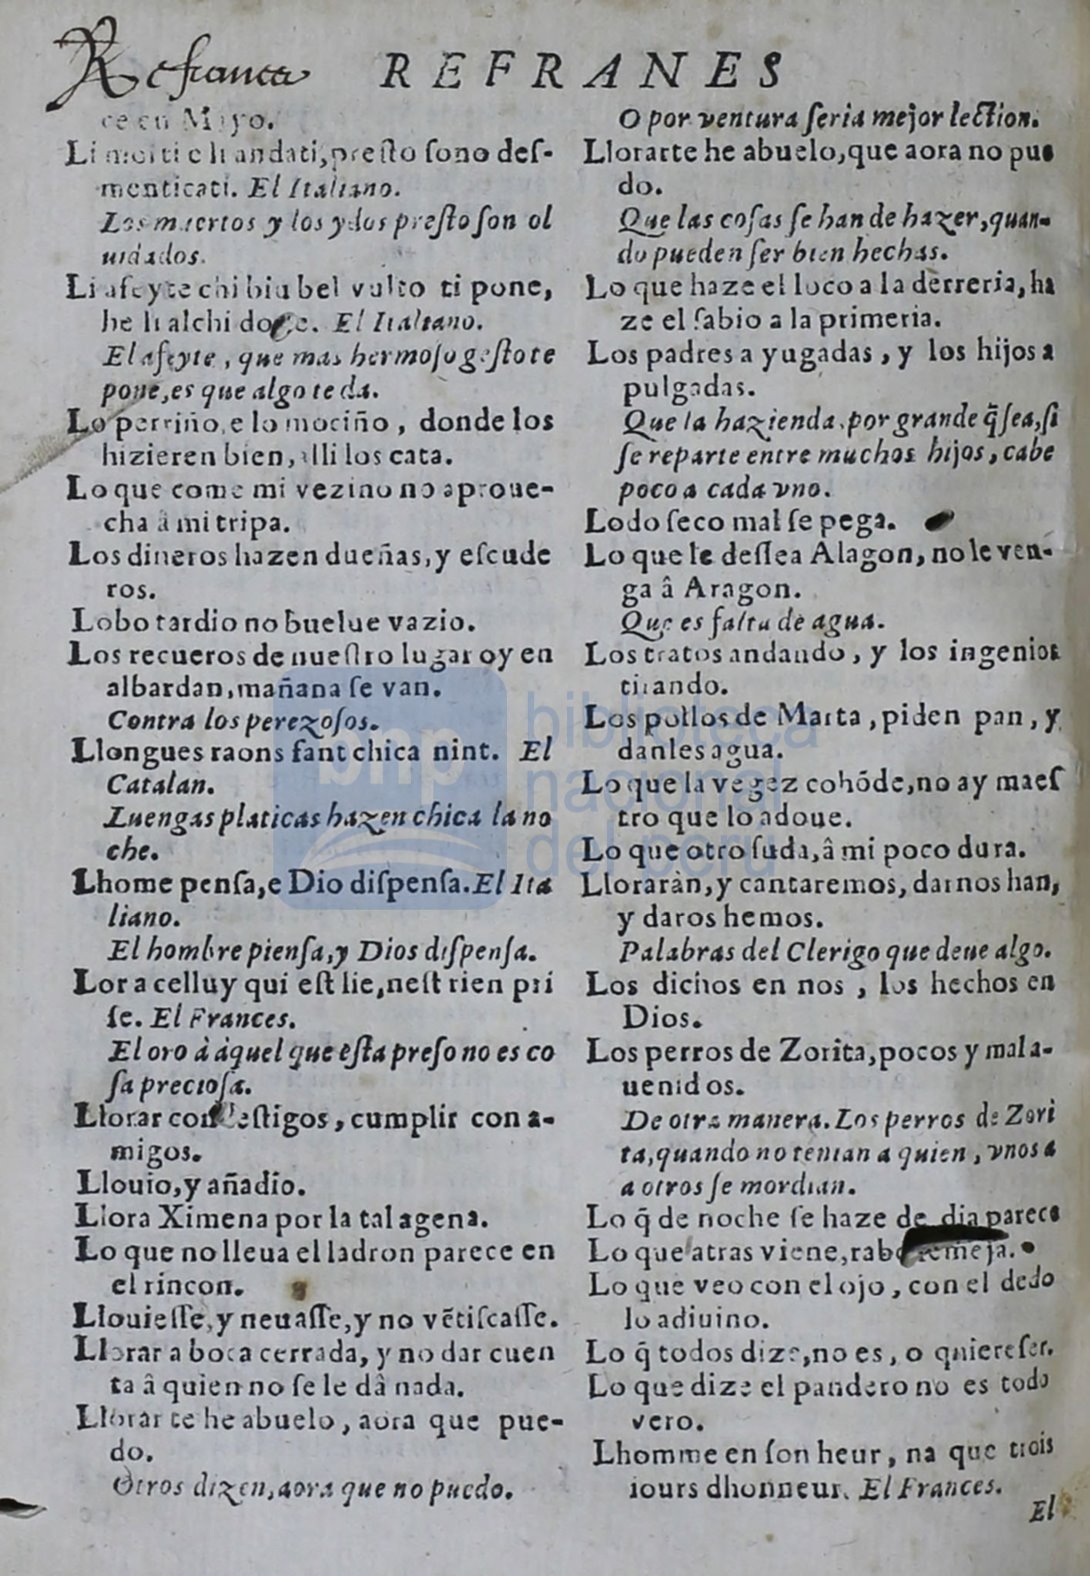 Refranes
REFRANES
ce en Mayo.
Li morti e li andati, presto sono des-
menticati. El Italiano.
Los muertos y los ydos presto son ol
uidados.
Li afeyte chi biu bel vulto ti pone,
he li alchi El Italiano.
El afeyte, que mas hermoso gesto te
pone, es que algo te da.
Lo perriño, e lo mociño, donde los
hizieren bien, alli los cata.
Lo que come mi vezino no aproue-
cha â mi tripa.
Los dineros hazen dueñas, y escude
ros.
Lobo tardio no buelue vazio.
Los recueros de nuestro lugar oy en
albardan, mañana se van.
Contra los perezosos.
Llongues raons fant chica nint. El
Catalan.
Luengas platicas hazen chica la no
che.
Lhome pensa, e Dio dispensa. El Ita
liano.
El hombre piensa, y Dios dispensa.
Lor a celluy qui est lie, nest rien pri
se. El Frances.
El oro à àquel que èsta preso no es co
sa preciosa.
Llorar con testigos, cumplir con a-
migos.
Llouio, y añadio.
Llora Ximena por la tal agena.
Lo que no lleua el ladron parece en
el rincon.
Llouiesse, y neuasse, y no vẽtiscasse.
Llorar a boca cerrada, y no dar cuen
ta â quien no se le dâ nada.
Llorar te he abuelo, aora que pue-
do.
Otros dizen, aora que no puedo.
O por ventura seria mejor lection.
Llorarte he abuelo, que aora no pue
do.
Que las cosas se han de hazer, quan-
do pueden ser bien hechas.
Lo que haze el loco a la derreria, ha
ze el sabio a la primeria.
Los padres a yugadas, y los hijos a
pulgadas.
Que la hazienda, por grande q̃ sea, si
se reparte entre muchos hijos, cabe
poco a cada vno.
Lodo seco mal se pega.
Lo que le dessea Alagon, no le ven-
ga â Aragon.
Que es falta de agua.
Los tratos andando, y los ingenios
tirando.
Los pollos de Marta, piden pan, y
danles agua.
Lo que la vegez cohõde, no ay maes
tro que lo adoue.
Lo que otro suda, â mi poco dura.
Lloraràn, y cantaremos, darnos han,
y daros hemos.
Palabras del Clerigo que deue algo.
Los dichos en nos, los hechos en
Dios.
Los perros de Zorita, pocos y mal a-
uenidos.
De otra manera. Los perros de Zori
ta, quando no tenian a quien, vnos a
a otros se mordian.
Lo q̃ de noche se haze de dia parece
Lo que atras viene, rabo semeja.
Lo que veo con el ojo, con el dedo
lo adiuino.
Lo q̃ todos dize, no es, o quiere ser.
Lo que dize el pandero no es todo
vero.
Lhomme en son heur, na que trois
iours dhonneur. El Frances.
El
bnp
biblioteca
nacional
del perú